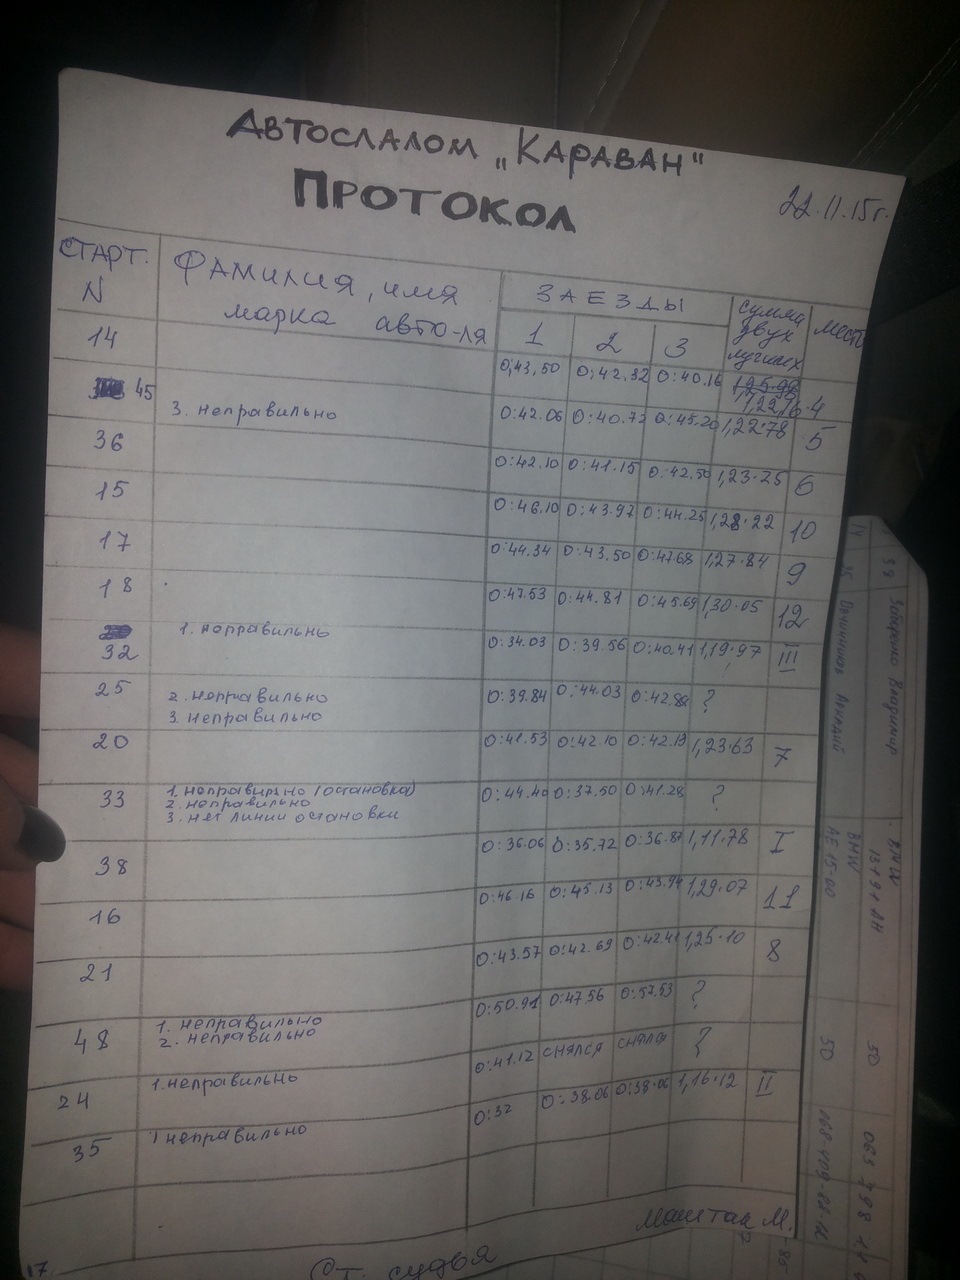 Автослалом „Караван"
Протокол
22.11.15г.
СТАРТ. N Фамилия, имя марка авто-ля ЗАЕЗДЫ 1 2 3 сумма двух лучших место
14 0:43,50 0:42.32 0:40.16 1,22,16 4
45 3. неправильно 0:42.06 0:40.72 0:45.20 1,22.78 5
36 0:42.10 0:41.15 0:42.50 1,23.25 6
15 0:46.10 0:43.97 0:44.25 1,28.22 10
17 0:44.34 0:43,50 0:47.68 1,27.84 9
18 0:47.53 0:44.81 0:45.69 1,30.05 12
32 1. неправильно 0:34.03 0:39.56 0:40.41 1,19.97 III
25 2. неправильно 0:39.84 0:44.03 0:42.88 ?
3. неправильно
20 0:41.53 0:42.10 0:42.19 1,23.63 7
33 1. неправильно (остановка) 0:44.40 0:37.50 0:41.28 ?
2. неправильно
3. нет линии остановки
38 0:36.06 0:35,72 0:36.87 1,11.78 I
16 0:46.16 0:45.13 0:43.94 1,29.07 11
21 0:43.57 0:42.69 0:42.41 1,25.10 8
48 1. неправильно 0:50.91 0:47.56 0:57.53 ?
2. неправильно
24 1. неправильно 0:41.12 снялся снялся ?
35 1 неправильно 0:32 0:38.06 0:38.06 1,16.12 II
Маштак М.
Ст. судья
17
38 Забирко Владимир BMW 1379 АН 5D
35 Овчинников Аркадий BMW AE 15-00 5D 068-409-88-11